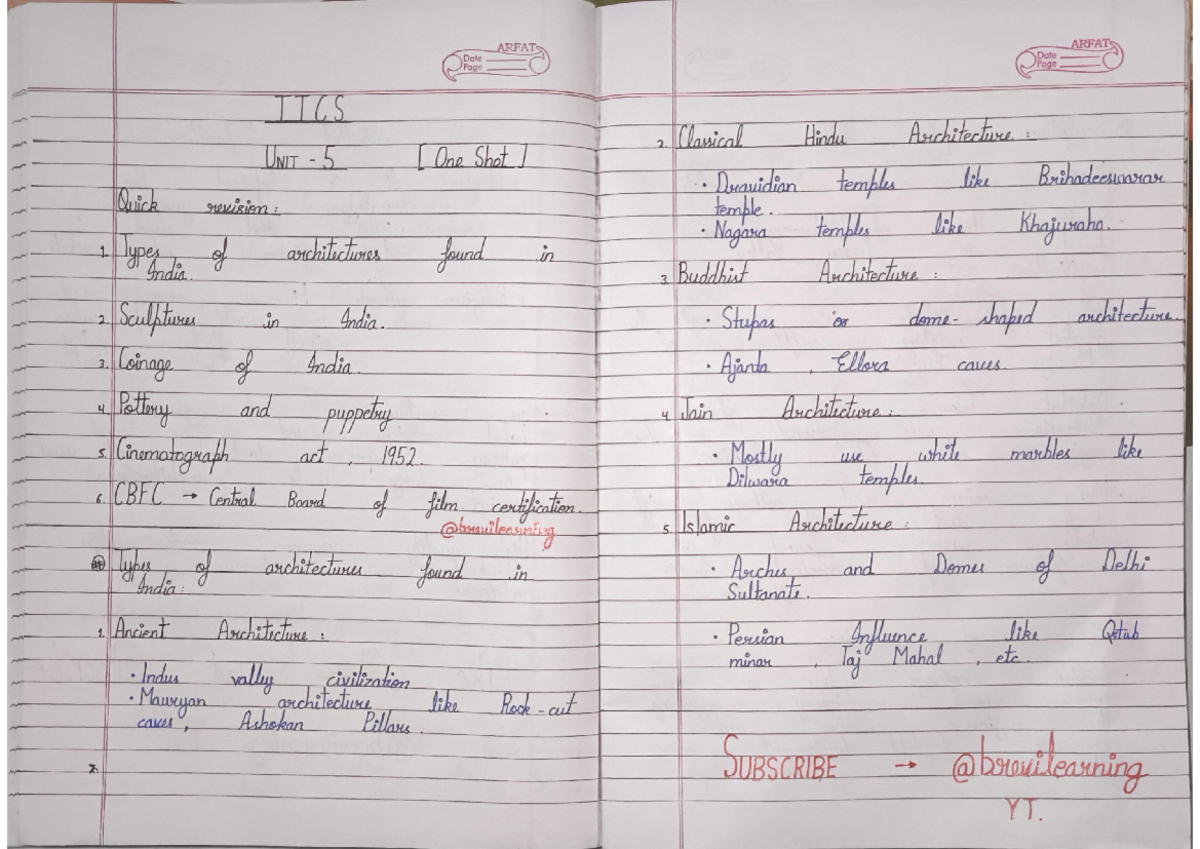 ARFAT
Date
Page
ITCS
UNIT - 5 [ One Shot ]
Quick revision :
1. Types of architectures found in
India.
2. Sculptures in India.
3. Coinage of India.
4. Pottery and puppetry
5. Cinematograph act , 1952.
6. CBFC → Central Board of film certification.
@brevilearning
# Types of architectures found in
India :
1. Ancient Architecture :
• Indus valley civilization
• Mauryan architecture like Rock-cut
caves, Ashokan Pillars.
ARFAT
Date
Page
2. Classical Hindu Architecture :
• Dravidian temples like Brihadeeswarar
temple.
• Nagara temples like Khajuraho.
3. Buddhist Architecture :
• Stupas or dome-shaped architecture.
• Ajanta , Ellora caves.
4. Jain Architecture :
• Mostly use white marbles like
Dilwara temples.
5. Islamic Architecture :
• Arches and Domes of Delhi
Sultanate.
• Persian Influence like Qutub
minar , Taj Mahal , etc.
SUBSCRIBE → @brevilearning
YT.